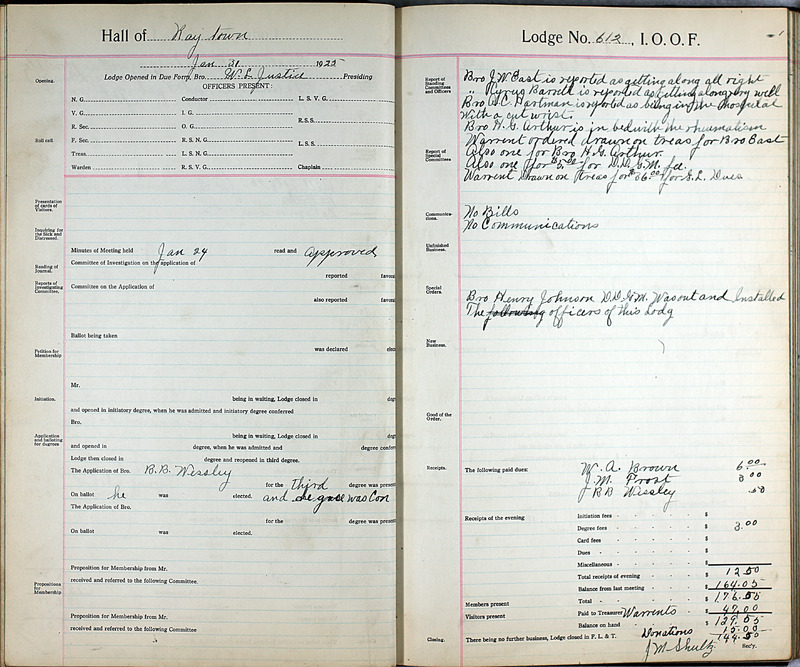 Hall of Raytown
Jan 31 1925
Lodge Opened in Due Form, Bro. W. L. Justice Presiding
Opening.
OFFICERS PRESENT:
N. G. Conductor L. S. V. G.
V. G. I. G.
R.S.S.
R. Sec. O. G.
Roll call
F. Sec. R. S. N. G.
L.S.S.
Treas. L. S. N. G.
Warden R. S. V. G. Chaplain
Presentation of cards of Visitors.
Inquiring for the Sick and Distressed.
Minutes of Meeting held Jan 24 read and approved
Reading of Journal.
Committee of Investigation on the application of
reported favor
Reports of Investigating Committee.
Committee on the Application of
also reported favor
Ballot being taken
Petition for Membership
was declared elec
Mr.
Initiation.
being in waiting, Lodge closed in deg
and opened in initiatory degree, when he was admitted and initiatory degree conferred
Bro.
Application and balloting for degrees
being in waiting, Lodge closed in deg
and opened in degree, when he was admitted and degree confer
Lodge then closed in degree and reopened in third degree.
The Application of Bro. B. B. Wissley
for the third degree was present
On ballot he was elected. and degree was Con
The Application of Bro.
for the degree was present
On ballot was elected.
Proposition for Membership from Mr.
received and referred to the following Committee.
Propositions for Membership
Proposition for Membership from Mr.
received and referred to the following Committee
Lodge No. 612, I. O. O. F.
Report of Standing Committees and Officers
Bro J. W. East is reported as getting along all right
" Cyrus Barrell is reported as getting along very well
Bro W. C. Hartman is reported as being in the Hospital
With a cut wrist.
Bro H. G. Arthur is in bed with the rheumatism
Warrent ordered drawn on treas for Bro East
Report of Special Committees
Also one for Bro H. G. Arthur.
Also one for $5.00 for D.D.G.M. fee.
Warrent Drawn on treas for $06.00 for G. L. Dues
Communications.
No Bills
No Communications
Unfinished Business.
Special Orders.
Bro Henry Johnson D.D.G.M. Was out and Installed
The following officers of this Lodg
New Business.
Good of the Order.
Receipts.
The following paid dues: W. A. Brown 6.00
J. M. Frost 3.00
B B Wissley 50
Receipts of the evening Initiation fees $
Degree fees $ 3.00
Card fees $
Dues $
Miscellaneous $
Total receipts of evening $ 12.50
Balance from last meeting $ 164.05
Members present Total $ 176.55
Visitors present Paid to Treasurer Warrents $ 47.00
Balance on hand $ 129.55
Donations 15.00
Closing. There being no further business, Lodge closed in F. L. & T. 144.50
J M Shultz Sec'y.